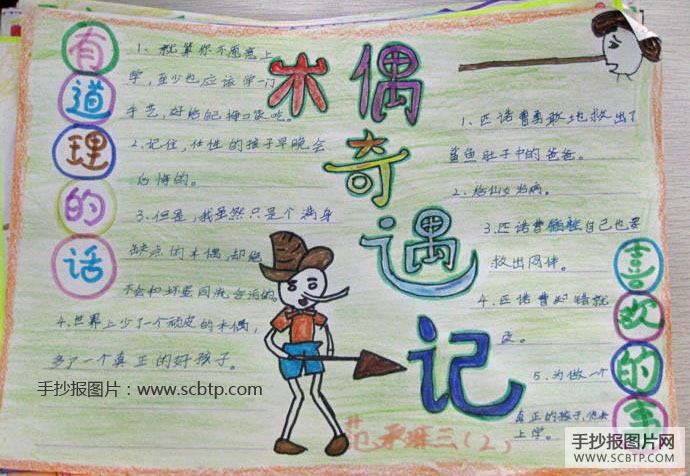 木偶奇遇记
有道理的话
1、就算你不愿意上
学，至少也应该学一门
手艺，好给自己挣口饭吃。
2.记住，任性的孩子早晚会
后悔的。
3.但是，我虽然只是个满身
缺点的木偶，却绝
不会和坏蛋同流合污的。
4.世界上少了一个顽皮的木偶，
多了一个真正的好孩子。
喜欢的事
1、匹诺曹勇敢地救出了
鲨鱼肚子中的爸爸。
2、给仙女治病。
3.匹诺曹牺牲自己也要
救出同伴。
4.匹诺曹知错就
改。
5.为做一个
真正的孩子，他去
上学。
三(2)
手抄报图片：www.scbtp.com
手抄报图片网
WWW.SCBTP.COM